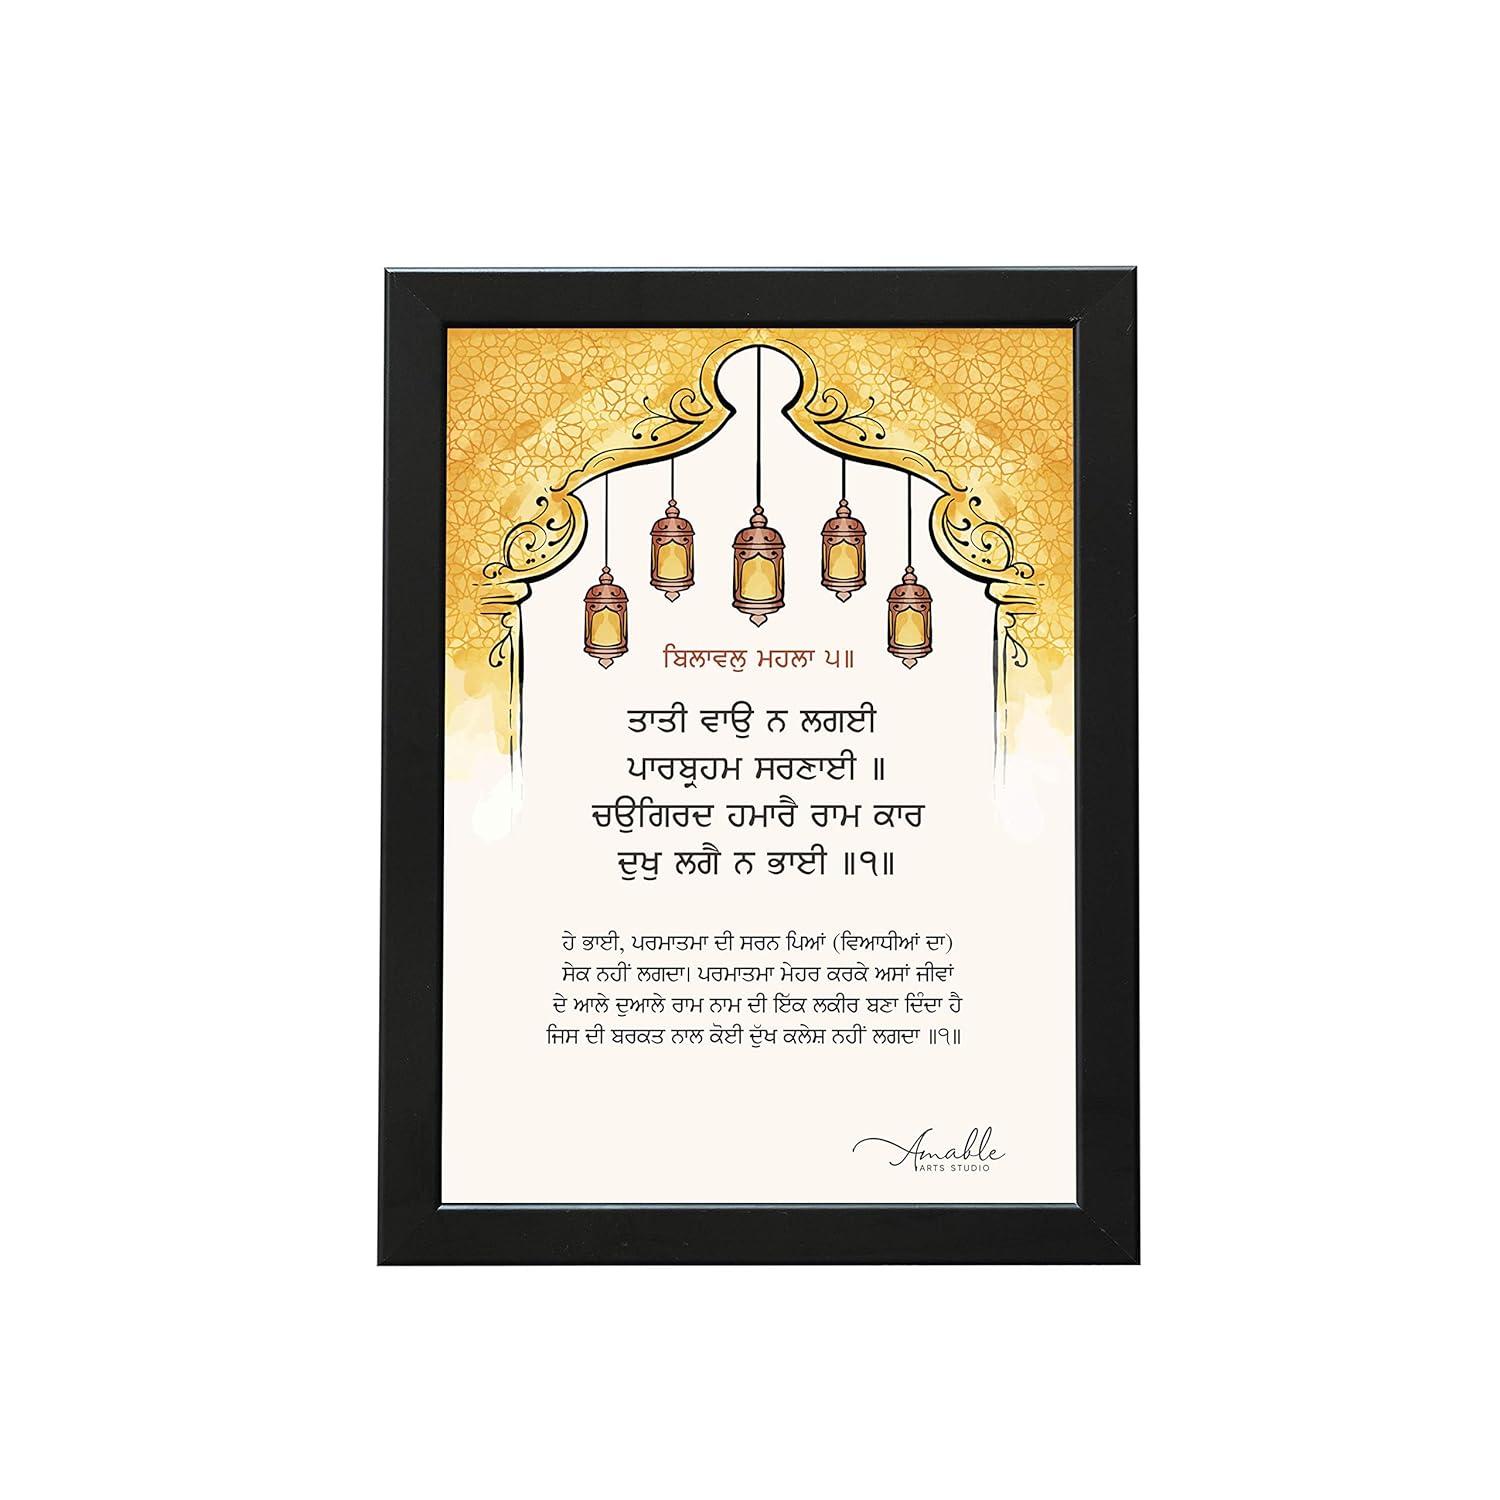 ਬਿਲਾਵਲੁ ਮਹਲਾ ੫॥
ਤਾਤੀ ਵਾਉ ਨ ਲਗਈ
ਪਾਰਬ੍ਰਹਮ ਸਰਣਾਈ ॥
ਚਉਗਿਰਦ ਹਮਾਰੈ ਰਾਮ ਕਾਰ
ਦੁਖੁ ਲਗੈ ਨ ਭਾਈ ॥੧॥
ਹੇ ਭਾਈ, ਪਰਮਾਤਮਾ ਦੀ ਸਰਨ ਪਿਆਂ (ਵਿਆਧੀਆਂ ਦਾ)
ਸੇਕ ਨਹੀਂ ਲਗਦਾ। ਪਰਮਾਤਮਾ ਮੇਹਰ ਕਰਕੇ ਅਸਾਂ ਜੀਵਾਂ
ਦੇ ਆਲੇ ਦੁਆਲੇ ਰਾਮ ਨਾਮ ਦੀ ਇੱਕ ਲਕੀਰ ਬਣਾ ਦਿੰਦਾ ਹੈ
ਜਿਸ ਦੀ ਬਰਕਤ ਨਾਲ ਕੋਈ ਦੁੱਖ ਕਲੇਸ਼ ਨਹੀਂ ਲਗਦਾ ॥੧॥
Amable
ARTS STUDIO